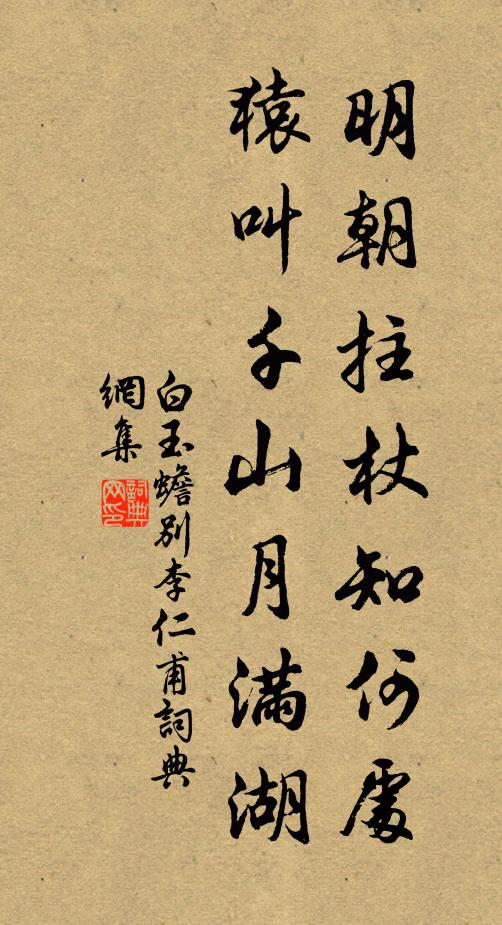 明朝拄杖知何處
猿叫千山月满湖
白玉蟾別李仁甫詞典
網集
詞典
网印